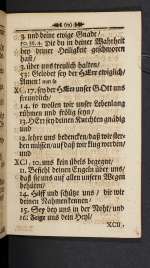 ( 70 )
3. und deine ewige Gnade /
10. 15. 4. Die du in deiner Wahrheit
bey deiner Heiligkeit geschworen
hast /
5. über uns treulich halten /
53. Gelobet sey der HErr ewiglich /
Amen!
XC, 17. sey der HErr unser GOtt uns
freundlich / und
14. so wollen wir unser Lebenlang
rühmen und frölich seyn /
13. HErr sey deinen Knechten gnädig
und
12. lehre uns bedencken / daß wir ster-
ben müssen / auf daß wir klug werden /
und
XCI, 10. uns kein übels begegne /
11. Befiehl deinen Engeln über uns /
daß sie uns auf allen unsern Wegen
behüten /
14. Hilff und schütze uns / die wir
deinen Nahmen kennen /
15. Sey bey uns in der Noht / und
16. Zeige uns dein Heyl /
XCII,